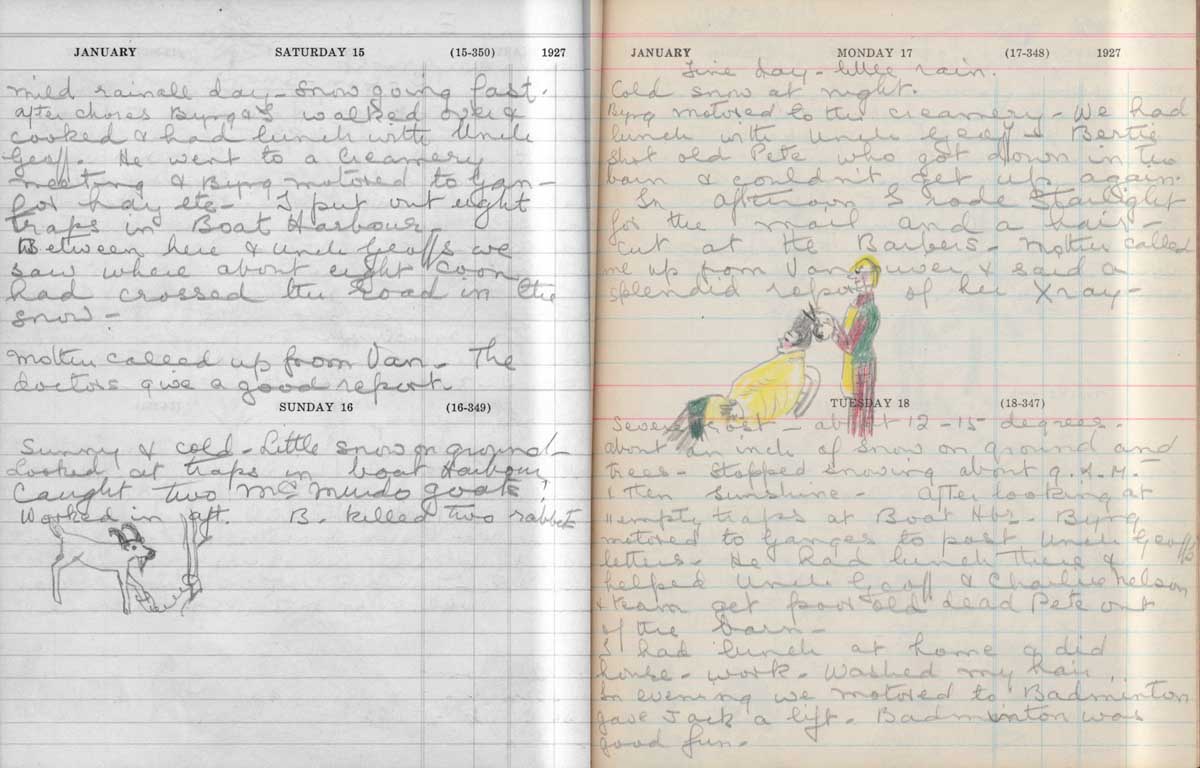 JANUARY SATURDAY 15 (15-350) 1927
mild rainall day - Snow going fast.
after chores Byrg & I walked over &
cooked & had lunch with Uncle
Geoff. He went to a Creamery
meeting & Byrg motored to Gan-
for hay etc- I put out eight
traps in Boat Harbour
Between here & Uncle Geoffs we
saw where about eight Coon
had crossed the Road in the
snow -
Mother called up from Van - The
doctors give a good report.
SUNDAY 16 (16-349)
Sunny & cold - Little snow on ground -
Looked at traps in boat Harbour
Caught two Mc Murdo goats!
Worked in aft. B. killed two rabbits
JANUARY MONDAY 17 (17-348) 1927
Fine day - little rain.
Cold snow at night.
Byrg motored to the creamery - We had
lunch with Uncle Geoff & Bertie
shot old Pete who got down in the
barn & couldn't get up again.
In afternoon I rode Starlight
for the mail and a hair-
cut at the Barbers - Mother called
me up from Vancouver & said a
splendid report of her Xray -
TUESDAY 18 (18-347)
Severe frost - about 12 - 15 degrees -
about an inch of snow on ground and
trees - Stopped snowing about 9. A.M. -
& then sunshine - After looking at
empty traps at Boat Hbr - Byrg
motored to Ganges to post Uncle Geoffs
letters - He had lunch there &
helped Uncle Geoff & Charlie Nelson
& team get poor old dead Pete out
of the barn -
I had lunch at home & did
house-work. Washed my hair.
In evening we motored to Badminton
gave Jack a lift. Badminton was
good fun.